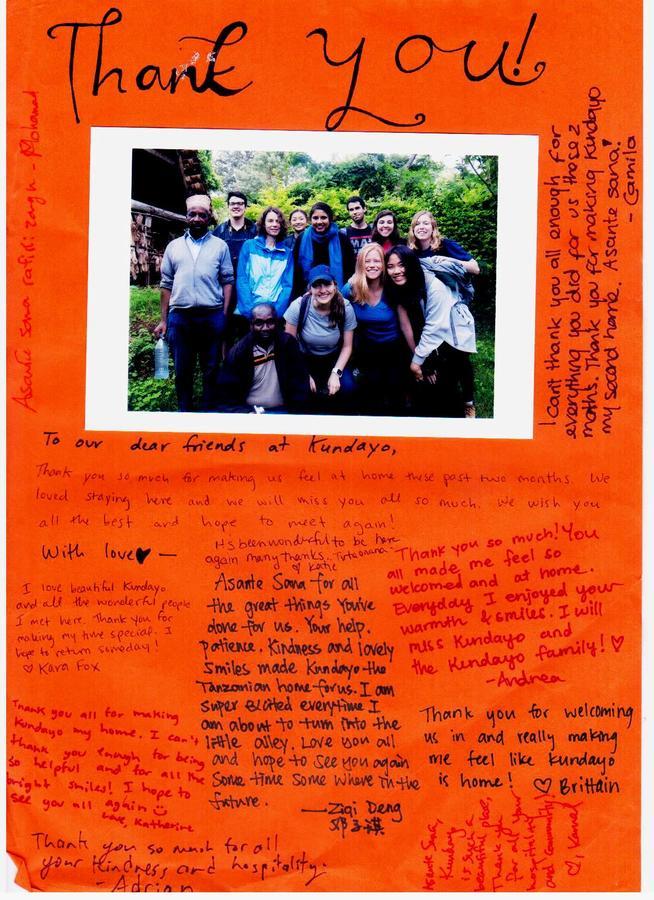 Thank You!
Asante sana rafiki zangu - Mohamad
I can't thank you all enough for
everything you did for us those 2
moths. Thank you for making Kundayo
my second home. Asante sana♥
- Camila
To our dear friends at Kundayo,
Thank you so much for making us feel at home these past two months. We
loved staying here and we will miss you all so much. We wish you
all the best and hope to meet again!
With love♥ —
It's been wonderful to be here
again many thanks. Tutaonana -
Katie
I love beautiful Kundayo
and all the wonderful people
I met here. Thank you for
making my time special. I
hope to return someday!
♡ Kara Fox
Asante Sana for all
the great things You've
done for us. Your help,
patience, Kindness and lovely
Smiles made Kundayo the
Tanzanian home for us. I am
super Exoted everytime I
am about to turn into the
little alley. Love you all
and hope to see you again
Some time some where in the
future.
—Ziqi Deng
邓子祺
Thank you so much! You
all made me feel so
welcomed and at home.
Everyday I enjoyed your
warmth & smiles. I will
miss Kundayo and
the Kundayo family! ♡
-Andrea
Thank you all for making
Kundayo my home. I can't
thank you enough for being
so helpful and for all the
bright smiles! I hope to
see you all again ☺
Love, Katherine
Thank you for welcoming
us in and really making
me feel like Kundayo
is home! ♡ Brittain
Thank you so much for all
your kindness and hospitality.
- Adrian
Asante Sana,
Kundayo
is such a
beautiful place,
Thank you
for all your
hospitality
and community!
♡, Kamal